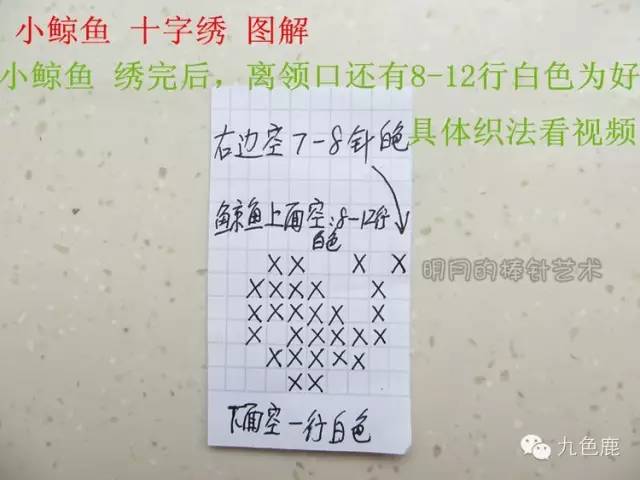 小鲸鱼 十字绣 图解
小鲸鱼 绣完后，离领口还有8-12行白色为好
具体织法看视频
右边空7-8针白色
鲸鱼上面空:8-12行
白色
明月的棒针艺术
XX X X
XXXX X
XXXXX X
X XXXXX
XXXXX
XX
下面空一行白色
九色鹿